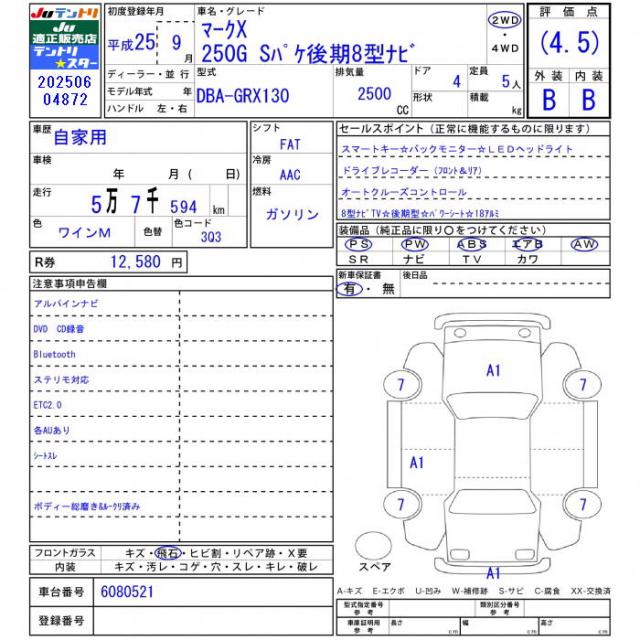 Juテントリ
Ju
適正販売店
テントリ
★スター
202506
04872
初度登録年月
平成25年 9月
車名・グレード
マークX
250G Sパケ後期8型ナビ
2WD
・
4WD
評価点
(4.5)
外装 内装
B B
ディーラー・並行
モデル年式 年
ハンドル 左・右
型式
DBA-GRX130
排気量
2500
CC
ドア 4
形状
定員 5人
積載 kg
車歴 自家用
車検 年 月(日)
走行 5万7千594km
色 ワインM
色替
色コード 3Q3
シフト
FAT
冷房
AAC
燃料
ガソリン
R券 12,580 円
セールスポイント(正常に機能するものに限ります)
スマートキー☆バックモニター☆LEDヘッドライト
ドライブレコーダー(フロント&リア)
オートクルーズコントロール
8型ナビTV☆後期型☆パワーシート☆18アルミ
装備品(純正品に限り〇をつけてください)
PS PW ABS エアB AW
SR ナビ TV カワ
新車保証書
有・無
後日品
注意事項申告欄
アルパインナビ
DVD CD録音
Bluetooth
ステリモ対応
ETC2.0
各AUあり
シートスレ
ボディー総磨き&ルークリ済み
A1
7 7
A1
7 7
A1
スペア
フロントガラス キズ・飛石・ヒビ割・リペア跡・X要
内装 キズ・汚レ・コゲ・穴・スレ・キレ・破レ
車台番号 6080521
登録番号
A-キズ E-エクボ U-凹み W-補修跡 S-サビ C-腐食 XX-交換済
型式指定番号
参考
類別区分番号
参考
車庫証明用
参考
長さ cm 幅 cm 高さ cm